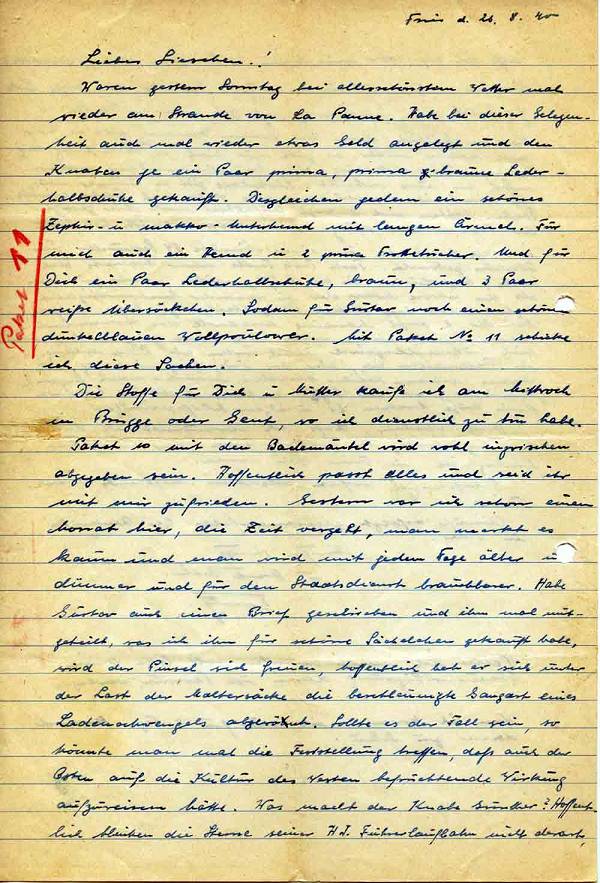 d. 26. 8. 40
Liebes Lieschen!
Waren gestern Sonntag bei allerschönstem Wetter mal
wieder am Strande von La Panne. Habe bei dieser Gelegen-
heit auch mal wieder etwas Geld angelegt und den
Knaben je ein Paar prima, prima braune Leder-
halbschuhe gekauft. Desgleichen jedem ein schönes
Zephir- u makko-Unterhemd mit langen Ärmel. Für
mich auch ein Hemd u 2 prima Frottetücher. Und für
Dich ein Paar Lederhalbschuhe, braun, und 3 Paar
weiße Übersöckchen. Sodann für Gustav noch einen schönen
dunkelblauen Wollpoulower. Mit Paket No 11 schicke
ich diese Sachen.
Paket 11
Die Stoffe für Dich u Mutter kaufe ich am Mittwoch
in Brügge oder Gent, wo ich dienstlich zu tun habe.
Paket 10 mit den Bademäntel wird wohl inzwischen
abgegeben sein. Hoffentlich passt alles und seid ihr
mit mir zufrieden. Gestern war ich schon einen
Monat hier, die Zeit vergeht, man merkt es
kaum und man wird mit jedem Tage älter u
dümmer und für den Staatsdienst brauchbarer. Habe
Gustav auch einen Brief geschrieben und ihm mal mit-
geteilt, was ich ihm für schöne Sächelchen gekauft habe,
wird der Pinsel sich freuen, hoffentlich hat er sich unter
der Last der Maltersäcke die beschleunigte Gangart eines
Ladenschwengels abgewöhnt. Sollte es der Fall sein, so
könnte man mal die Feststellung treffen, daß auch der
Osten auf die Kultur des Westen befruchtende Wirkung
aufzuweisen hätte. Was macht der Knabe Günther? Hoffent-
lich bleiben die Sterne seiner HJ. Führerlaufbahn nicht derart,